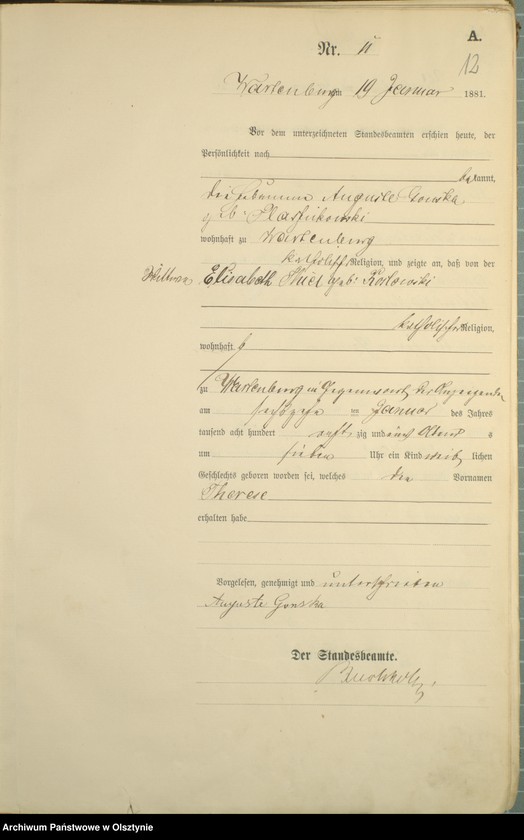 A.
Nr. 11
12
Wartenburg am 19 Januar 1881.
Vor dem unterzeichneten Standesbeamten erschien heute, der
Persönlichkeit nach
bekannt,
die Hebamme Auguste Gonska,
geb.
wohnhaft zu Wartenburg
katholischer Religion, und zeigte an, daß von der
Wittwe Elisabeth geb. Koslowski
katholischer Religion,
wohnhaft
zu Wartenburg in Gegenwart der Anzeigenden
am sechszehn ten Januar des Jahres
tausend acht hundert acht zig und eins Abends
um sieben Uhr ein Kind weib lichen
Geschlechts geboren worden sei, welches den Vornamen
Therese
erhalten habe
Vorgelesen, genehmigt und unterschrieben
Auguste Gonska
Der Standesbeamte.
Archiwum Państwowe w Olsztynie